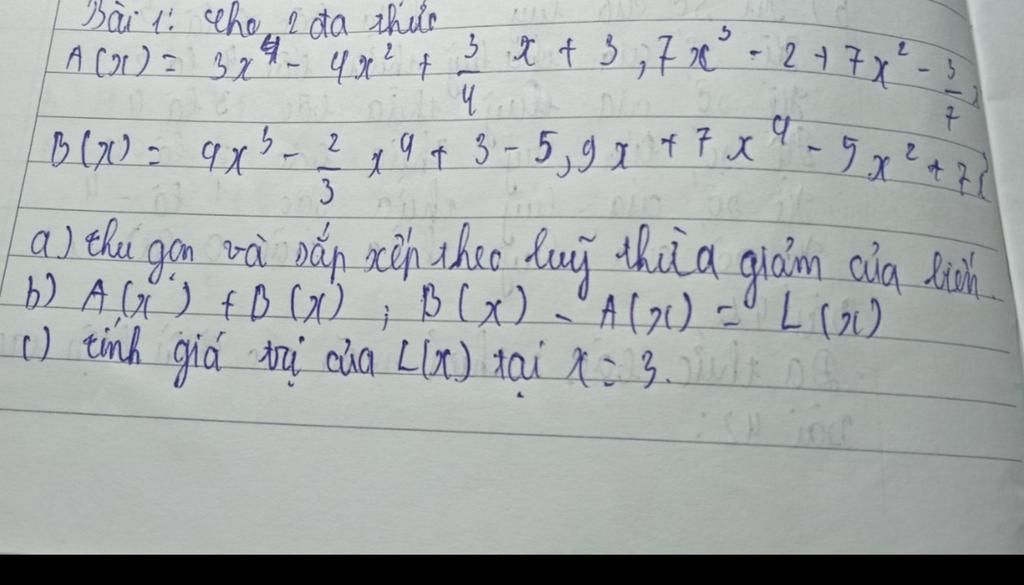 Bài 1: cho 2 đa thức
A(x) = 3x⁴ - 4x² + 3/4 x + 3,7x³ - 2 + 7x² - 3/7
B(x) = 9x³ - 2/3 x⁴ + 3 - 5,9x + 7x⁴ - 5x² + 7
a) thu gọn và sắp xếp theo luỹ thừa giảm của biến
b) A(x) + B(x) ; B(x) - A(x) = L(x)
c) tính giá trị của L(x) tại x = 3.